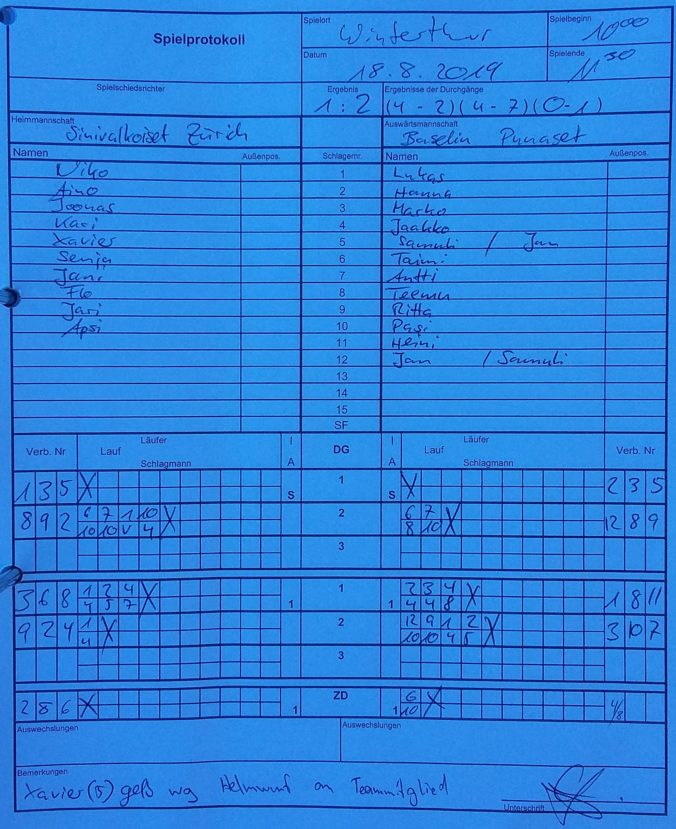 Spielprotokoll
Spielort
Winterthur
Spielbeginn
10 00
Datum
18.8.2019
Spielende
11 30
Spielschiedsrichter
Ergebnis
1:2
Ergebnisse der Durchgänge
(4 - 2) (4 - 7) (0-1)
Heimmannschaft
Sinivalkoiset Zürich
Auswärtsmannschaft
Baselin Punaset
Namen Außenpos. Schlagernr. Namen Außenpos.
Niko 1 Lukas
Aino 2 Hanna
Joonas 3 Marko
Kari 4 Jaakko
Xavier 5 Samuli / Jan
Senja 6 Taimi
Jani 7 Antti
Flo 8 Teemu
Jari 9 Ritta
Apsi 10 Pasi
11 Heini
12 Jan / Samuli
13
14
15
SF
Verb. Nr Lauf Läufer Schlagmann I A DG I A Lauf Läufer Schlagmann Verb. Nr
1 3 5 X S 1 S X 2 3 5
8 9 2 6 7 1 10 X 2 6 7 X 12 8 9
10 10 V 4 8 10
3
3 6 8 1 2 4 X 1 1 1 2 3 4 X 1 8 11
4 5 7 4 4 8
9 2 4 1 X 2 12 9 1 2 X 3 10 7
4 10 10 4 5
3
2 8 6 X 1 ZD 1 6 X 4/8
10
Auswechslungen
Auswechslungen
Bemerkungen
Xavier (5) gelb wg Helmwurf an Teammitglied
Unterschrift